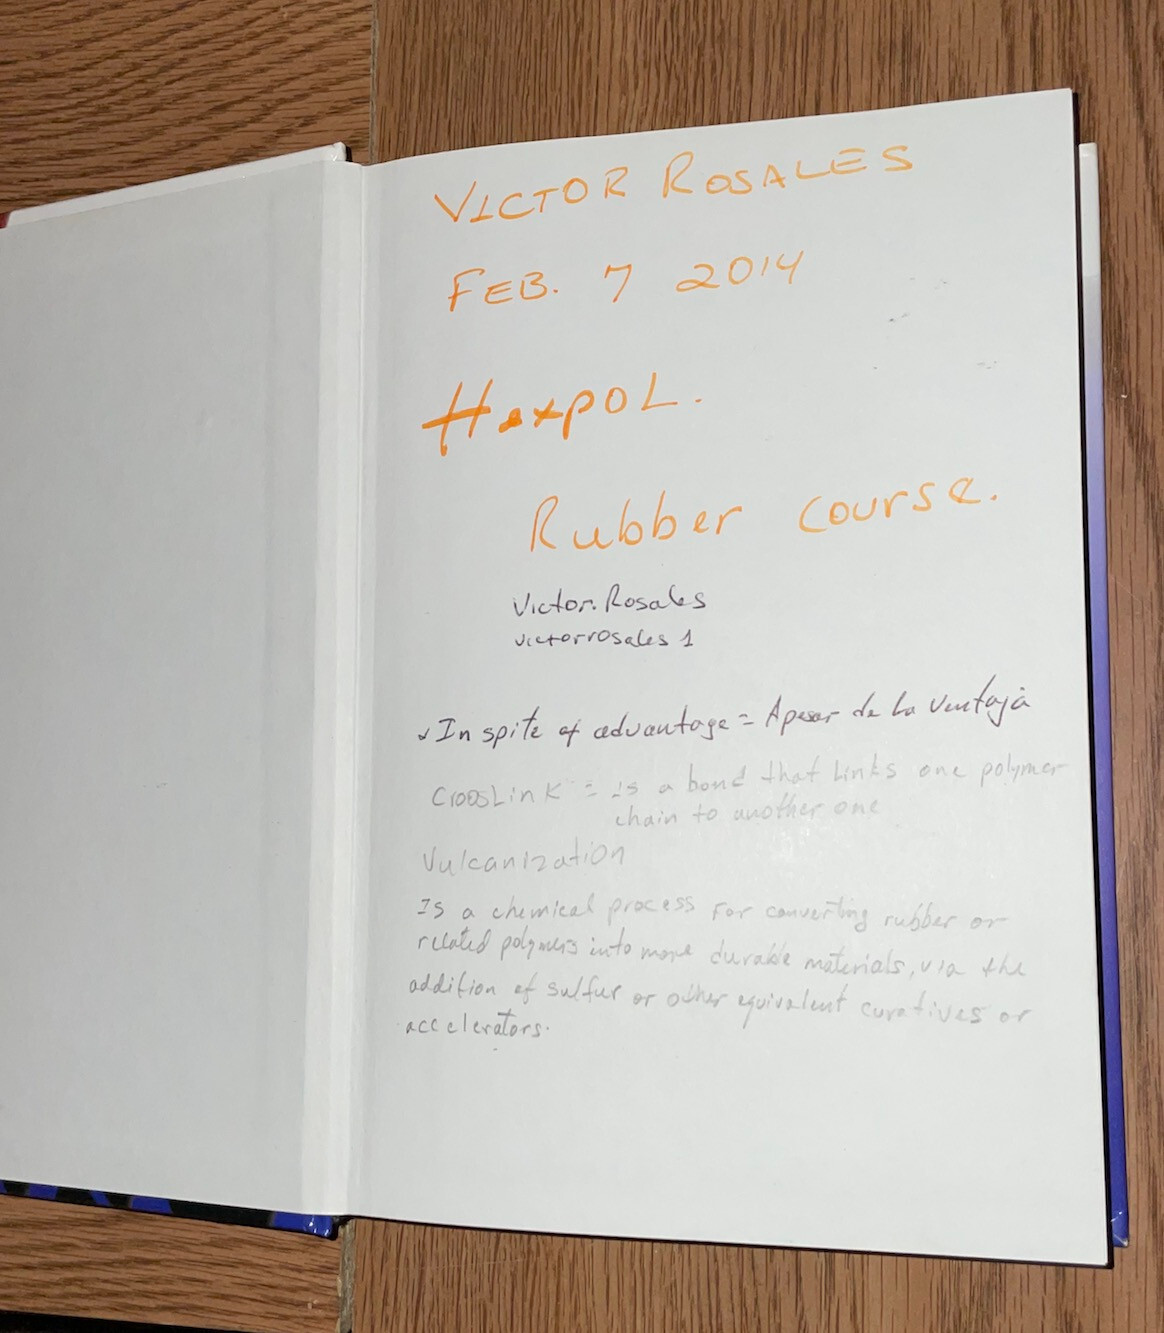 VICTOR ROSALES
FEB. 7 2014
HexpOL.
Rubber course.
Victor.Rosales
victorrosales1
✓ In spite of advantage = Apesar de la ventaja
CroosLink = is a bond that links one polymer
chain to another one
Vulcanization
Is a chemical process for converting rubber or
related polymers into more durable materials, via the
addition of sulfur or other equivalent curatives or
accelerators.